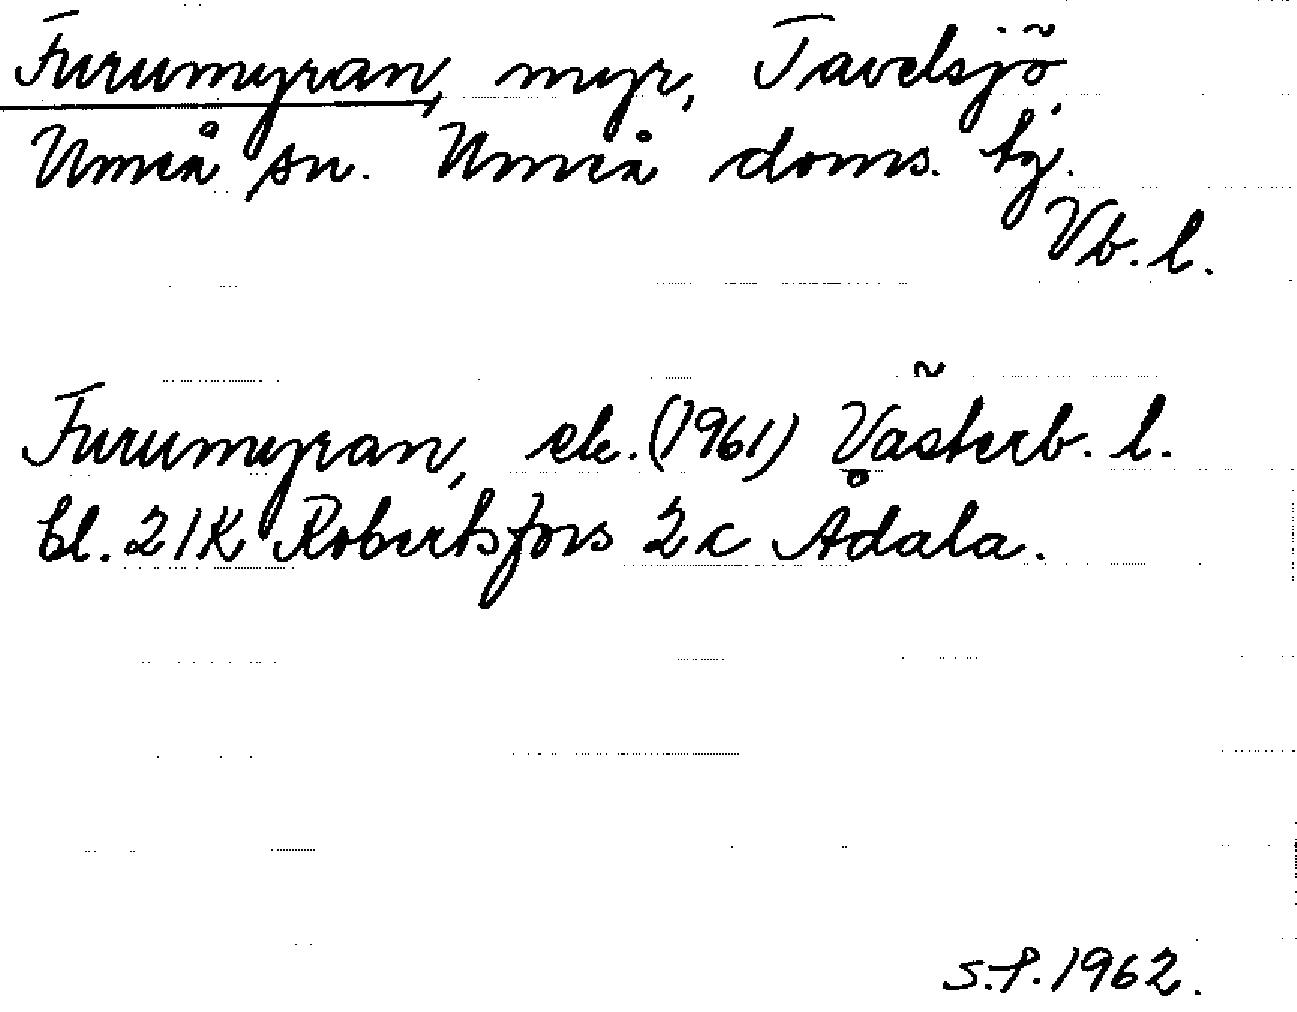 Furumyran, myr, Tavelsjö,
Umeå sn. Umeå doms. hj.
Vb. l.
Furumyran, ek. (1961) Västerb. l.
bl. 21K Robertsfors 2c Ådala.
S.P. 1962.